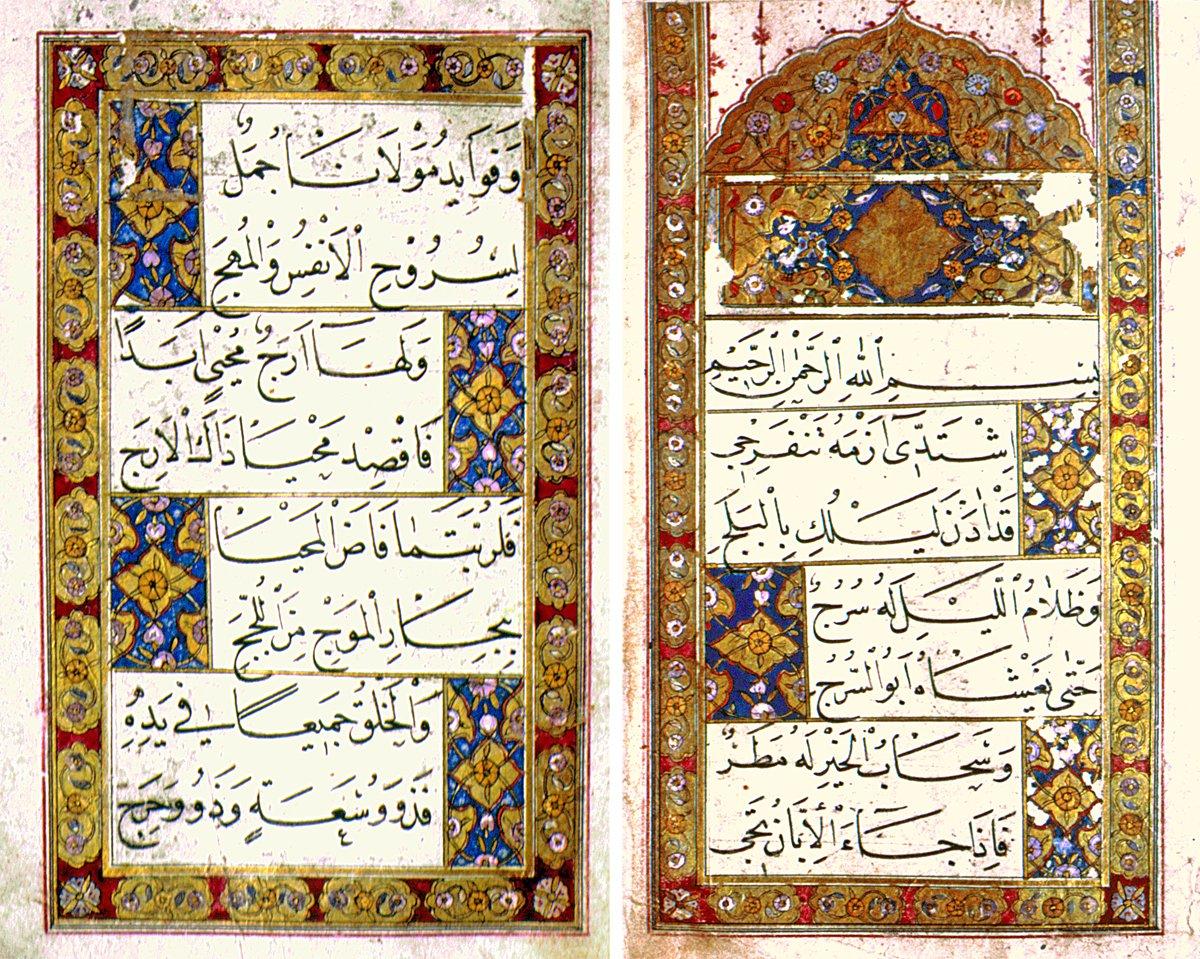 بِسْمِ ٱللهِ ٱلرَّحْمٰنِ ٱلرَّحِيْمِ
اِشْتَدِّىْ اَزْمَةُ تَنْفَرِجِي
قَدْ اٰذَنَ لَيْلُكِ بِالْبَلَجِ
وَظَلَامُ ٱللَّيْلِ لَهُ سُرُجٌ
حَتّٰى يَغْشَاهُ اَبُو السُّرُجِ
وَسَحَابُ الْخَيْرِ لَهُ مَطَرٌ
فَاِذَا جَاءَ الْاِبَّانُ تَجِي
وَفَوَايِدُ مَوْلَانَا جُمَلٌ
لِسُرُوْحِ الْاَنْفُسِ وَالْمُهَجِ
وَلَهَا اَرَجٌ مُحْيِي اَبَدًا
فَاقْصِدْ مَحْيَا ذَاكَ الْاَرَجِ
فَلَرُبَّتَمَا فَاضَ الْمَحْيَا
بِبِحَارِ الْمَوْجِ مِنَ اللُّجَجِ
وَالْخَلْقُ جَمِيْعًا فِي يَدِهِ
فَذَوُو سَعَةٍ وَذَوُو حَرَجِ